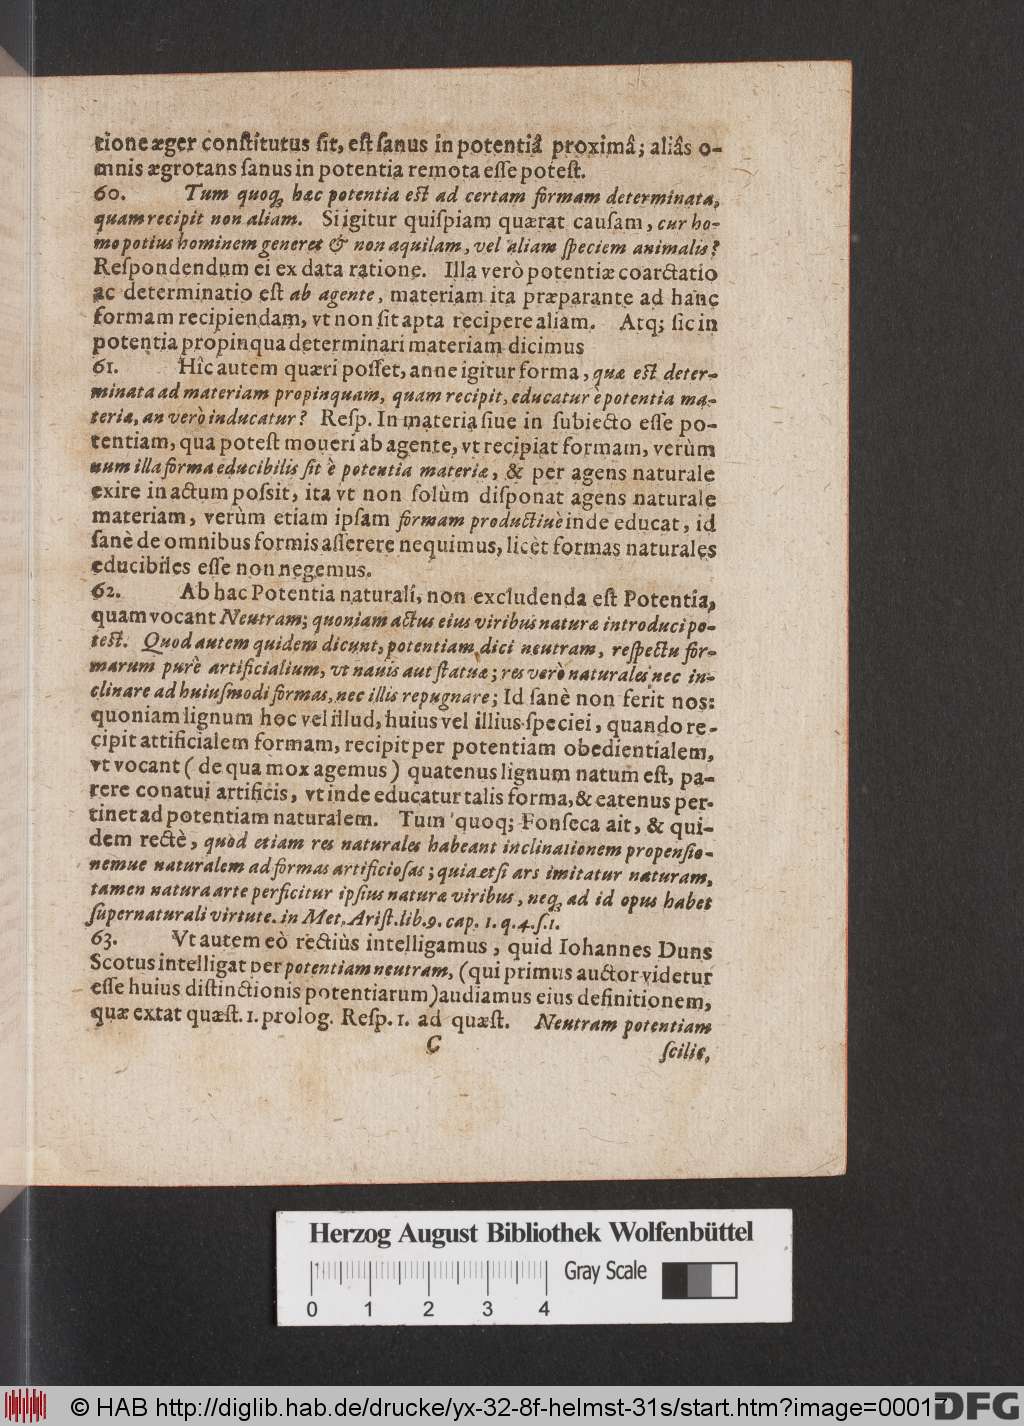 tione æger conſtitutus ſit, eſt ſanus in potentiâ proximâ; aliâs o-
mnis ægrotans ſanus in potentia remota eſſe poteſt.
60. Tum quoq; hæc potentia eſt ad certam formam determinata,
quam recipit non aliam. Si igitur quiſpiam quærat cauſam, cur ho-
mo potius hominem generet & non aquilam, vel aliam ſpeciem animalis?
Reſpondendum ei ex data ratione. Illa verò potentiæ coarctatio
ac determinatio eſt ab agente, materiam ita præparante ad hanc
formam recipiendam, vt non ſit apta recipere aliam. Atq; ſic in
potentia propinqua determinari materiam dicimus
61. Hîc autem quæri poſſet, anne igitur forma, quæ eſt deter-
minata ad materiam propinquam, quam recipit, educatur è potentia ma-
teriæ, an verò inducatur? Reſp. In materia ſiue in ſubiecto eſſe po-
tentiam, qua poteſt moueri ab agente, vt recipiat formam, verùm
num illa forma educibilis ſit è potentia materiæ, & per agens naturale
exire in actum poſsit, ita vt non ſolùm diſponat agens naturale
materiam, verùm etiam ipſam formam productiuè inde educat, id
ſanè de omnibus formis aſſerere nequimus, licèt formas naturales
educibiles eſſe non negemus.
62. Ab hac Potentia naturali, non excludenda eſt Potentia,
quam vocant Neutram; quoniam actus eius viribus naturæ introduci po-
teſt. Quod autem quidem dicunt, potentiam dici neutram, reſpectu for-
marum purè artificialium, vt nauis aut ſtatuæ; res verò naturales nec in-
clinare ad huiuſmodi formas, nec illis repugnare; Id ſanè non ferit nos:
quoniam lignum hoc vel illud, huius vel illius ſpeciei, quando re-
cipit attificialem formam, recipit per potentiam obedientialem,
vt vocant ( de qua mox agemus ) quatenus lignum natum eſt, pa-
rere conatui artificis, vt inde educatur talis forma, & eatenus per-
tinet ad potentiam naturalem. Tum quoq; Fonſeca ait, & qui-
dem rectè, quòd etiam res naturales habeant inclinationem propenſio-
nemue naturalem ad formas artificioſas; quia etſi ars imitatur naturam,
tamen natura arte perficitur ipſius naturæ viribus, neq; ad id opus habet
ſupernaturali virtute. in Met. Ariſt. lib. 9. cap. 1. q. 4. ſ. 1.
63. Vt autem eò rectiùs intelligamus, quid Iohannes Duns
Scotus intelligat per potentiam neutram, (qui primus auctor videtur
eſſe huius diſtinctionis potentiarum) audiamus eius definitionem,
quæ extat quæſt. 1. prolog. Reſp. 1. ad quæſt. Neutram potentiam
C
ſcilic,
Herzog August Bibliothek Wolfenbüttel
Gray Scale
0 1 2 3 4
© HAB http://diglib.hab.de/drucke/yx-32-8f-helmst-31s/start.htm?image=00017
DFG